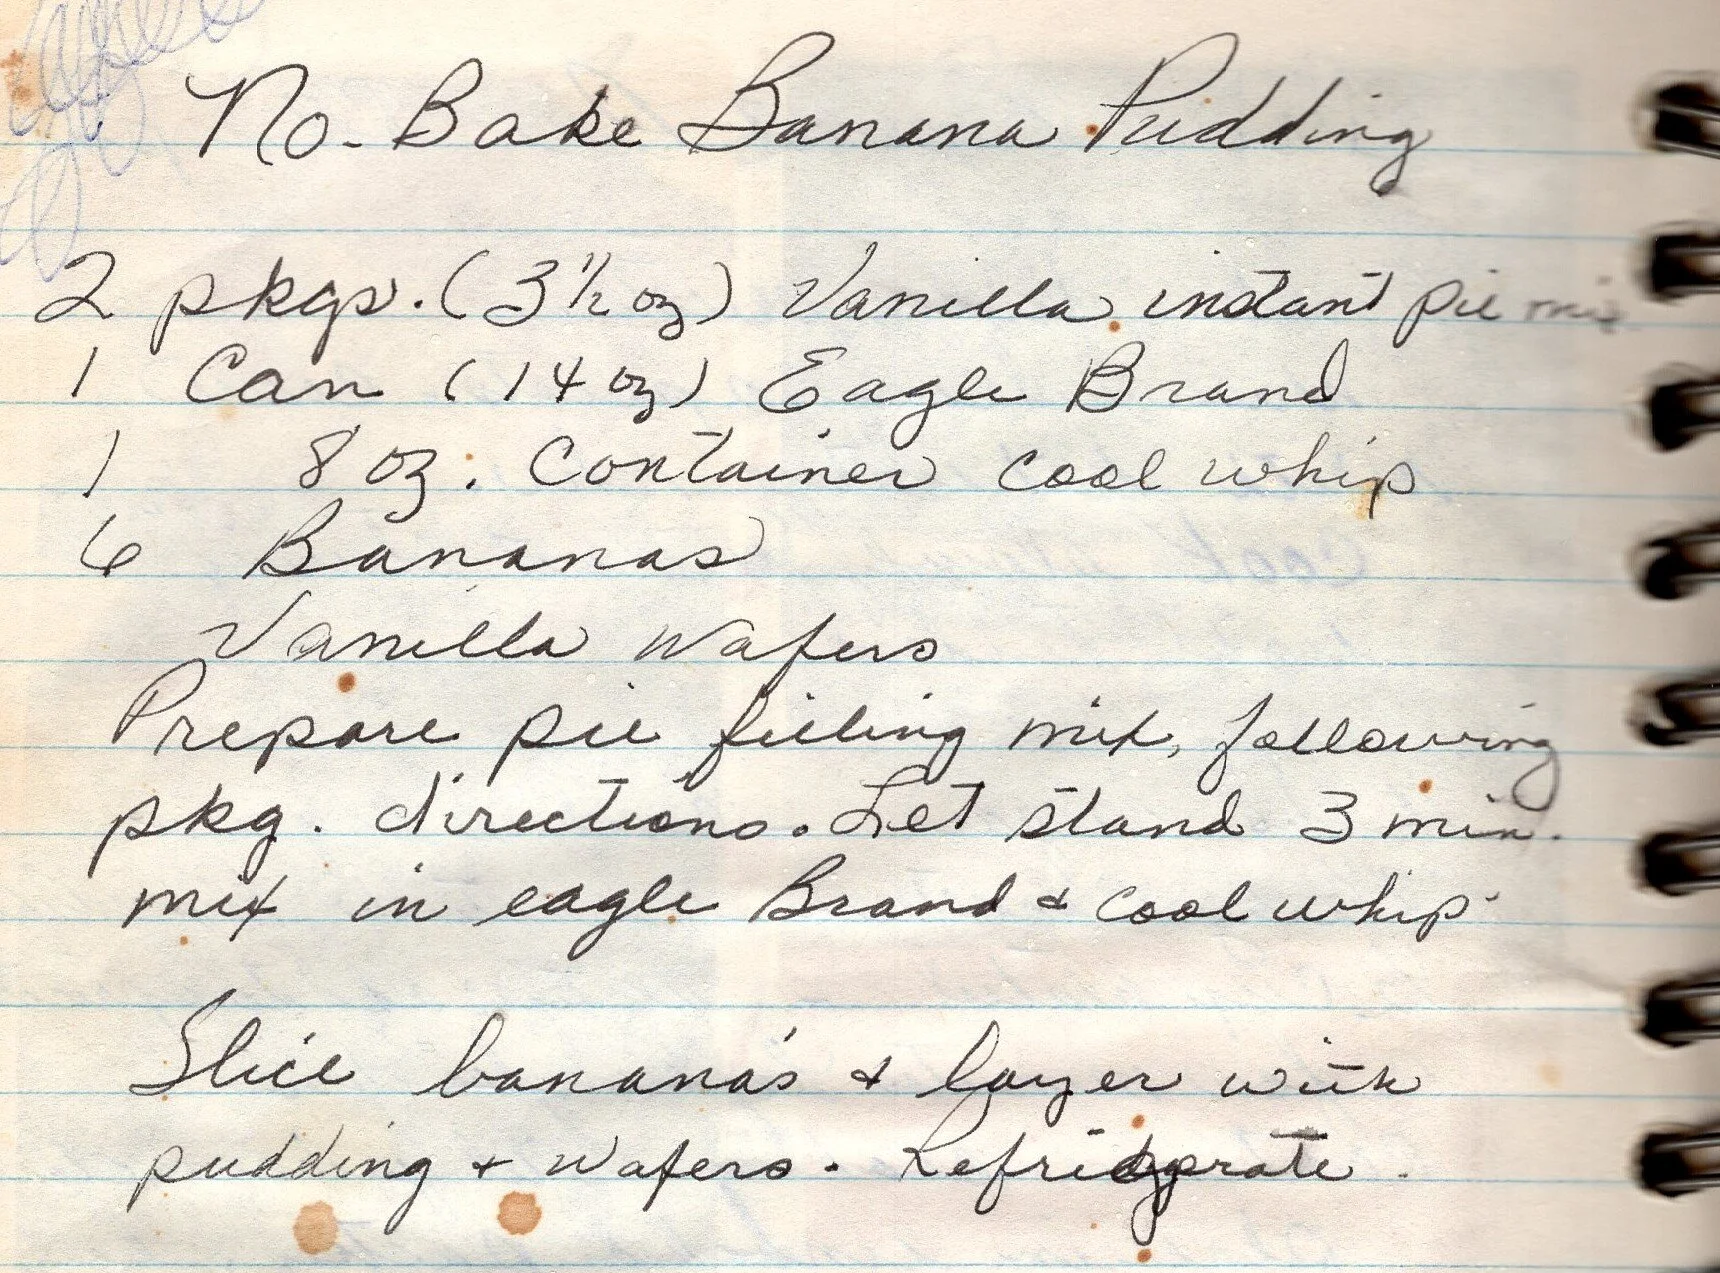 No. Bake Banana Pudding
2 pkgs. (3 1/2 oz) Vanilla instant pie mix
1 Can (14 oz) Eagle Brand
1 8 oz. Container Cool whip
6 Bananas
Vanilla Wafers
Prepare pie filling mix, following
pkg. directions. Let stand 3 min.
mix in eagle Brand & cool whip.
Slice banana's & layer with
pudding + wafers. Refridgerate.